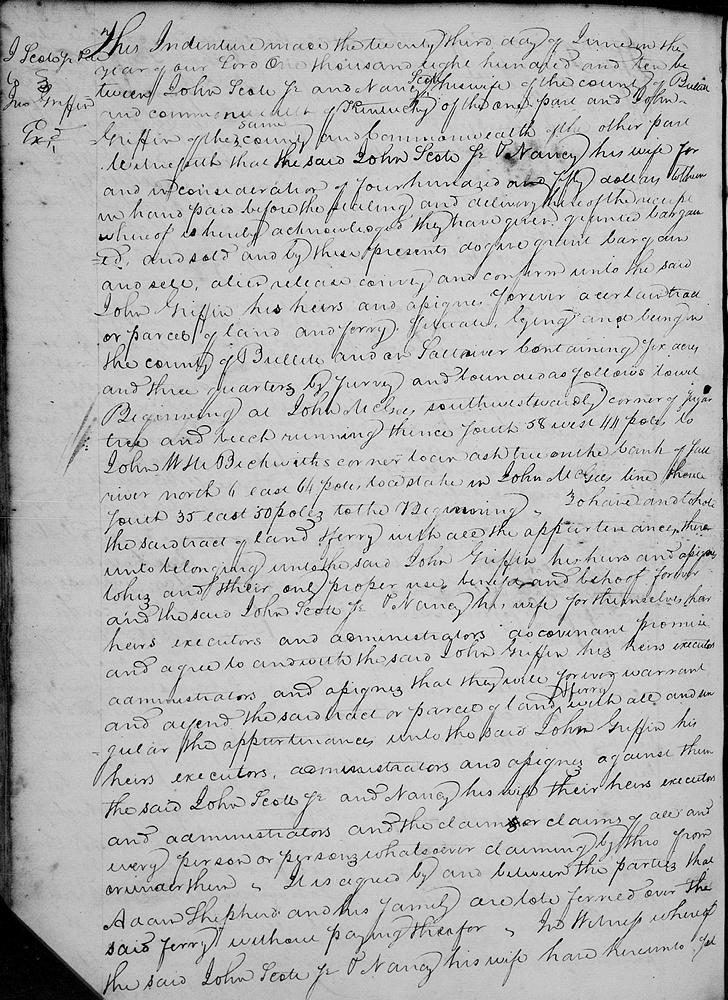 J Scott Jr &c
to
Jno Griffin
Exd
This Indenture made the twenty third day of June in the
year of our Lord One thousand eight hundred and ten be
tween John Scott Jr and Nancy Scott his wife of the county of Bullitt
and commonwealth of Kentucky of the one part and John
Griffin of the same county and Commonwealth of the other part
Witnesseth that the said John Scott Jr & Nancy his wife for
and in consideration of four hundred and fifty dollars to them
in hand paid before the sealing and delivery hereof the receipt
whereof is hereby acknowledged they have given granted bargan
ed, and sold and by these presents do give grant bargain
and sell, alien release convey and confirm unto the said
John Griffin his heirs and assignes forever a certain tract
or parcel of land and ferry, situate, lying and being in
the county of Bullitt and on Salt river Containing six acres
and three quarters by survey and bounded as follows towit
Beginning at John McGees southwestwardly corner of sugar
tree and beech running thence South 58 west 44 poles to
John W Beckwiths corner to an ash tree on the bank of salt
river north 6 east 64 poles to a stake in John McGees line thence
South 35 east 50 poles to the Beginning, To have and to hold
the said tract of land & ferry with all the appurtenances there
unto belonging unto the said John Griffin his heirs and assignes
to his and their only proper use, benefit and behoof forever
and the said John Scott Jr & Nancy his wife for themselves their
heirs executors and administrators do covenant promise
and agree to and with the said John Griffin his heirs executors
administrators and assignes that they will forever warrant
and defend the said tract or parcel of land & ferry with all and sin
gular the appurtinances unto the said John Griffin his
heirs executors, administrators and assignes against them
the said John Scott Jr and Nancy his wife their heirs executors
and administrators and the claim or claims of all and
every person or persons whatsoever claiming by thro from
or under them, It is agreed by and between the parties that
Adam Shepherd and his family are to be ferried over the
said ferry without paying therefor, In Witness whereof
the said John Scott Jr & Nancy his wife have hereunto set